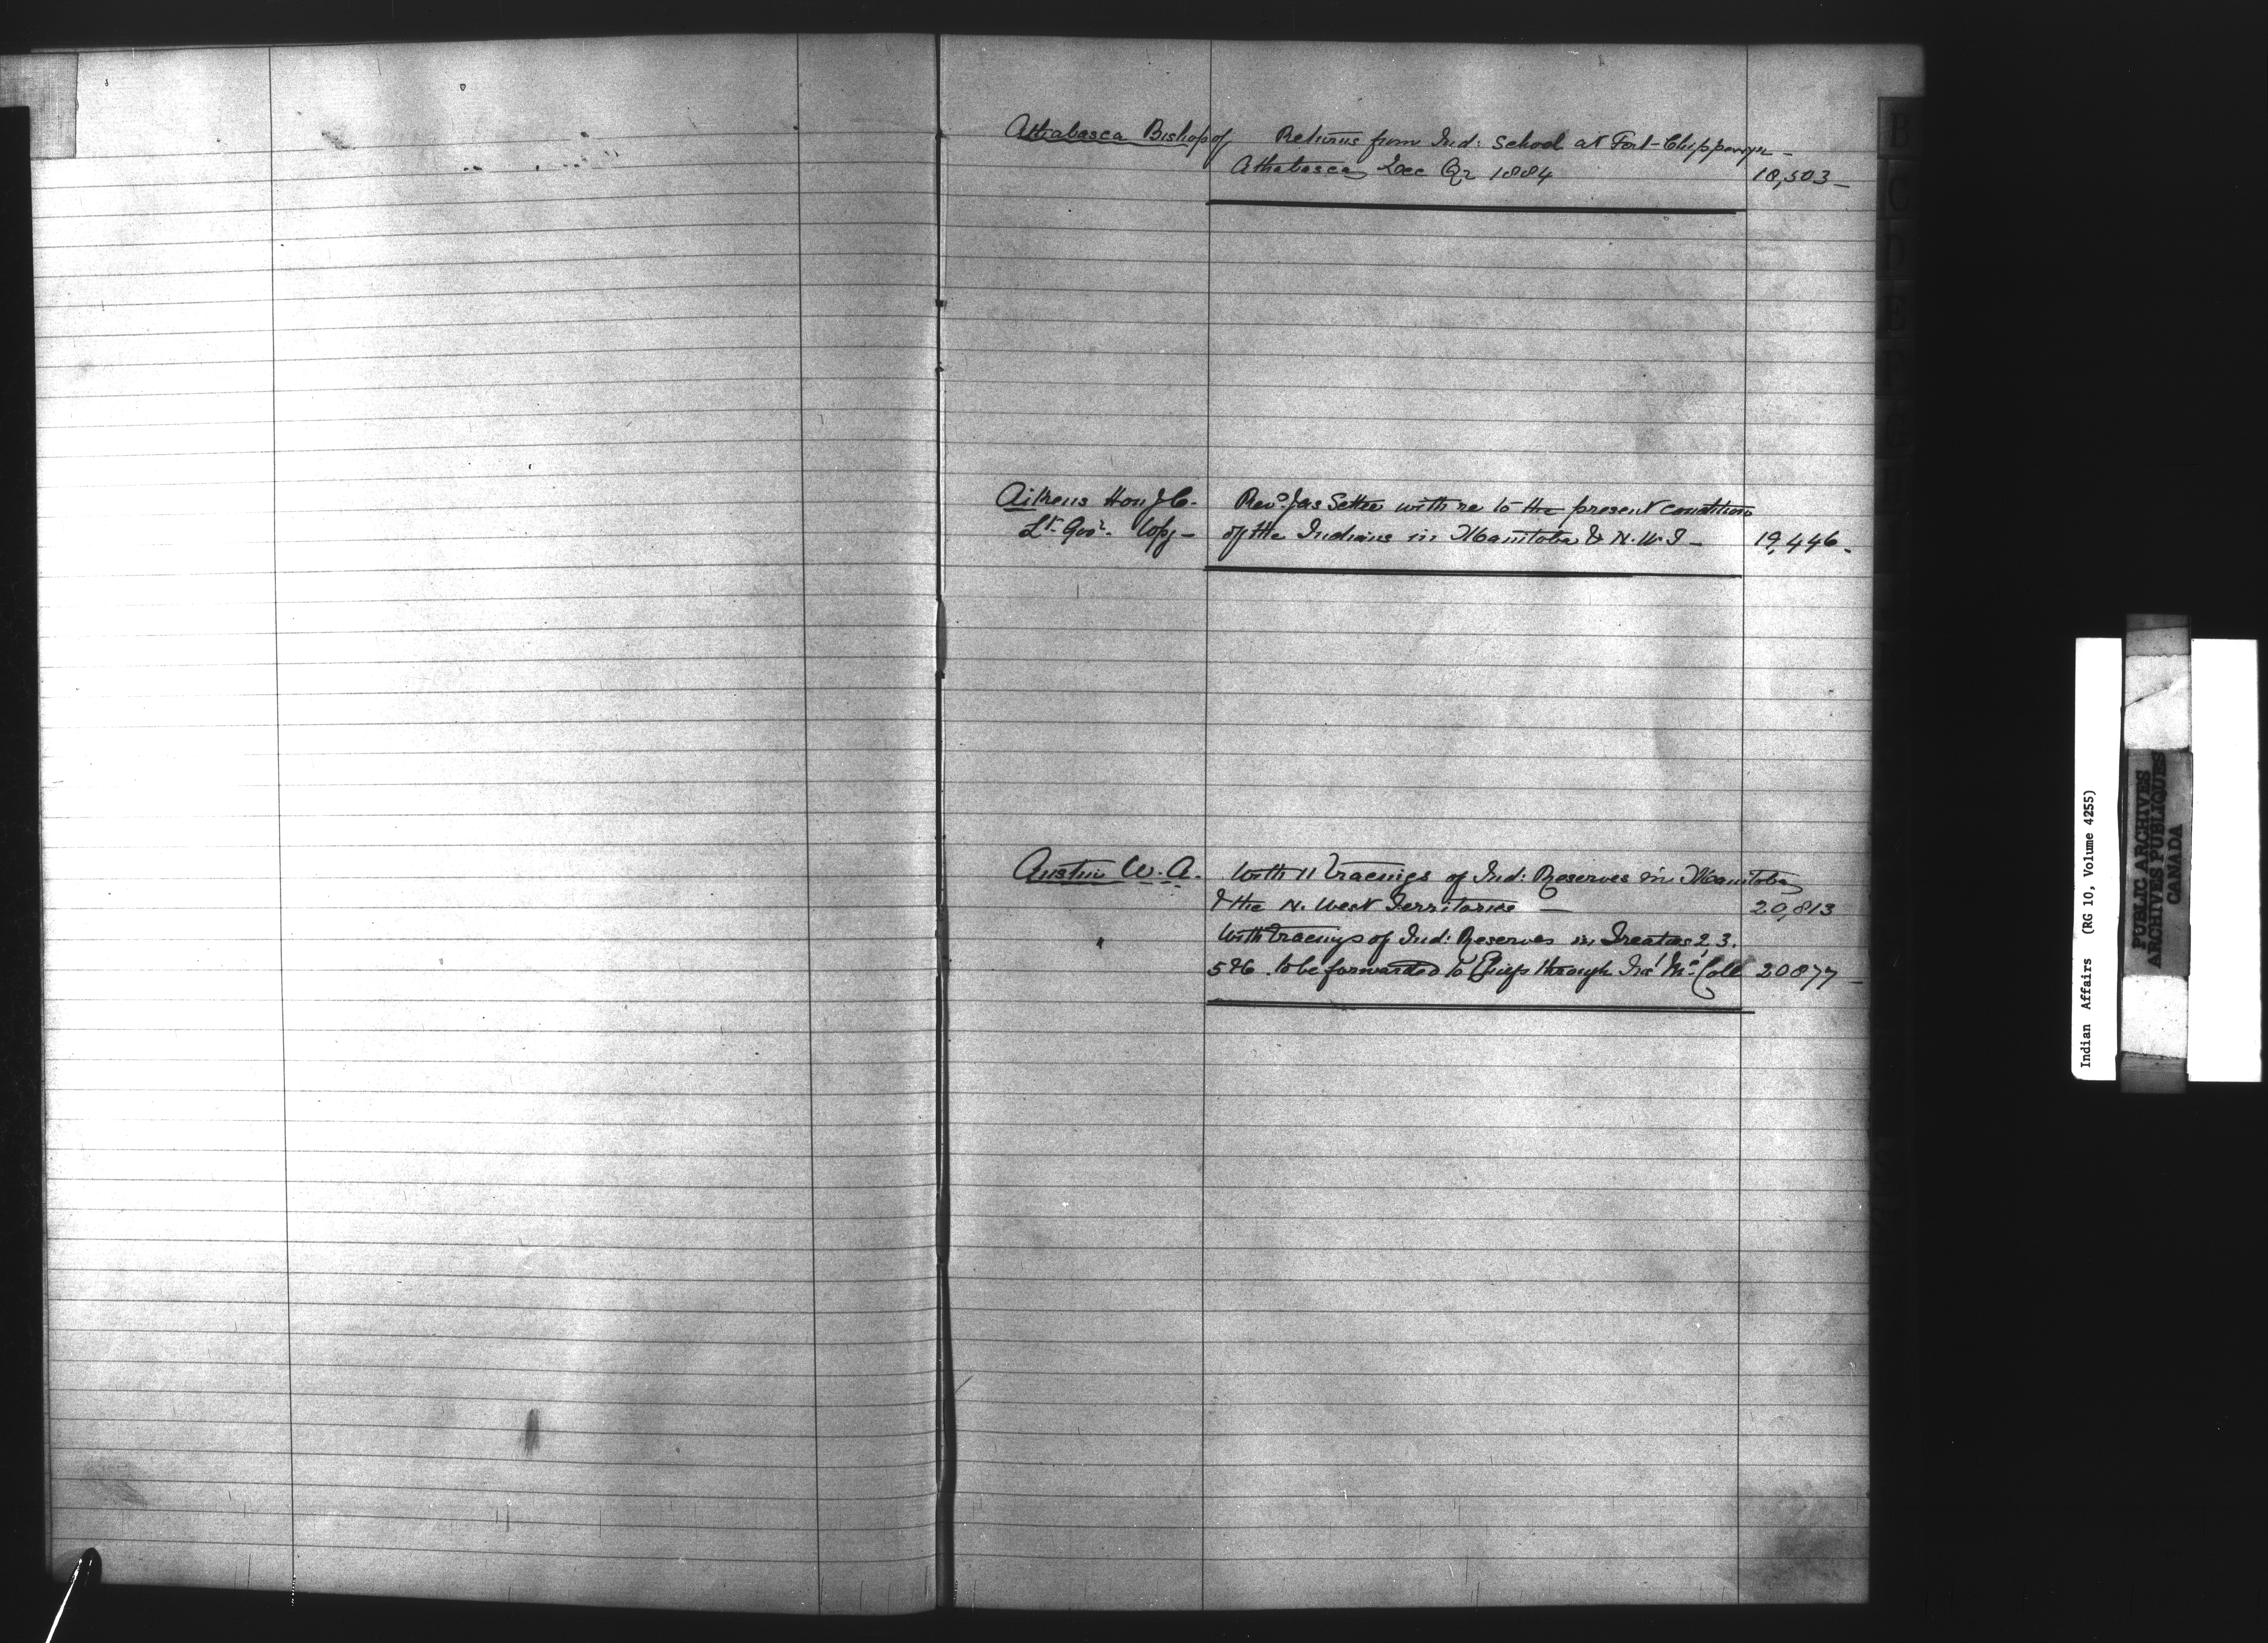 Athabasca Bishop of Returns from Ind: School at Fort-Chippewyn -
Athabasca Dec Qr 1884 18,503 -
Aikens Hon J C. Revd Jas Settee with re to the present condition
Lt. Govr. Copy - of the Indians in Manitoba & N.W.T - 19,446.
Austin W. A. With 11 tracings of Ind: Reserves in Manitoba
& the N. West Territories - 20,813
" With tracings of Ind: Reserves in Treaties 2 3.
5 & 6 to be forwarded to Chiefs through Ins' Mc Coll 20877 -
B
C
D
E
F
G
Indian Affairs (RG 10, Volume 4255)
PUBLIC ARCHIVES
ARCHIVES PUBLIQUES
CANADA